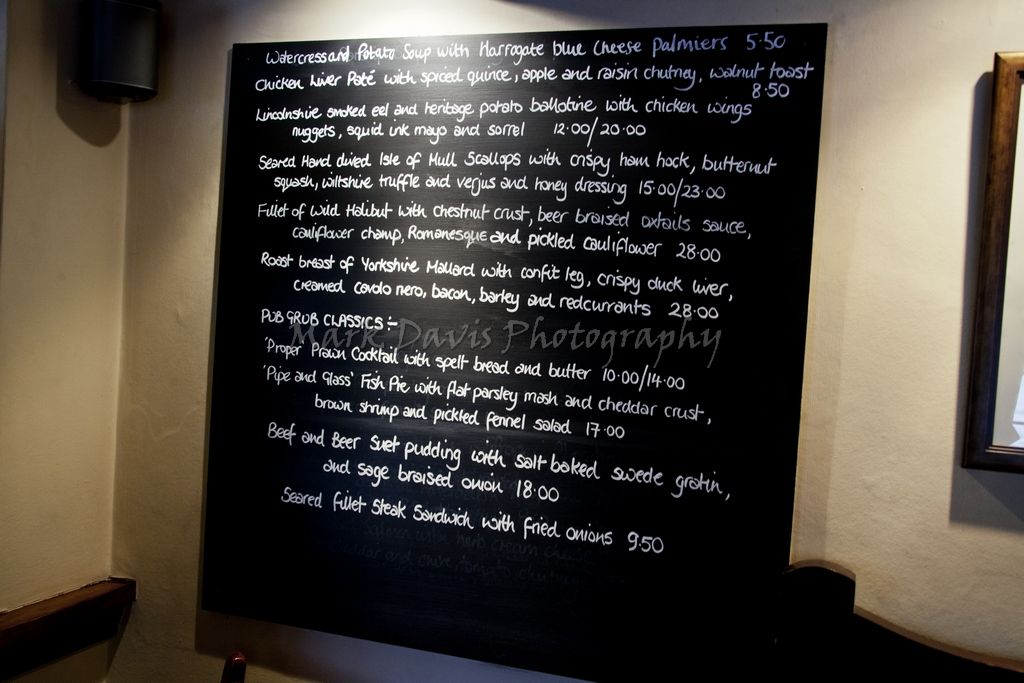 Watercress and Potato Soup with Harrogate blue Cheese Palmiers 5.50
Chicken Liver Paté with spiced quince, apple and raisin chutney, walnut toast
8.50
Lincolnshire smoked eel and heritage potato ballotine with chicken wings
nuggets, squid ink mayo and sorrel 12.00/20.00
Seared Hand dived Isle of Mull Scallops with crispy ham hock, butternut
squash, wiltshire truffle and verjus and honey dressing 15.00/23.00
Fillet of Wild Halibut with Chestnut crust, beer braised oxtails sauce,
cauliflower champ, Romanesque and pickled cauliflower 28.00
Roast breast of Yorkshire Mallard with confit leg, crispy duck liver,
creamed cavolo nero, bacon, barley and redcurrants 28.00
PUB GRUB CLASSICS :-
Mark Davis Photography
'Proper' Prawn Cocktail with spelt bread and butter 10.00/14.00
'Pipe and Glass' Fish Pie with flat parsley mash and cheddar crust,
brown shrimp and pickled fennel salad 17.00
Beef and Beer Suet pudding with salt baked swede gratin,
and sage braised onion 18.00
Seared fillet Steak Sandwich with fried onions 9.50